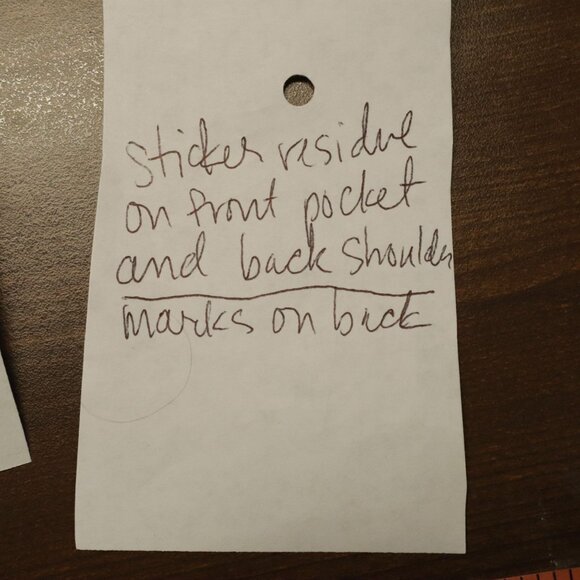 Sticker residue
on front pocket
and back shoulder
marks on back